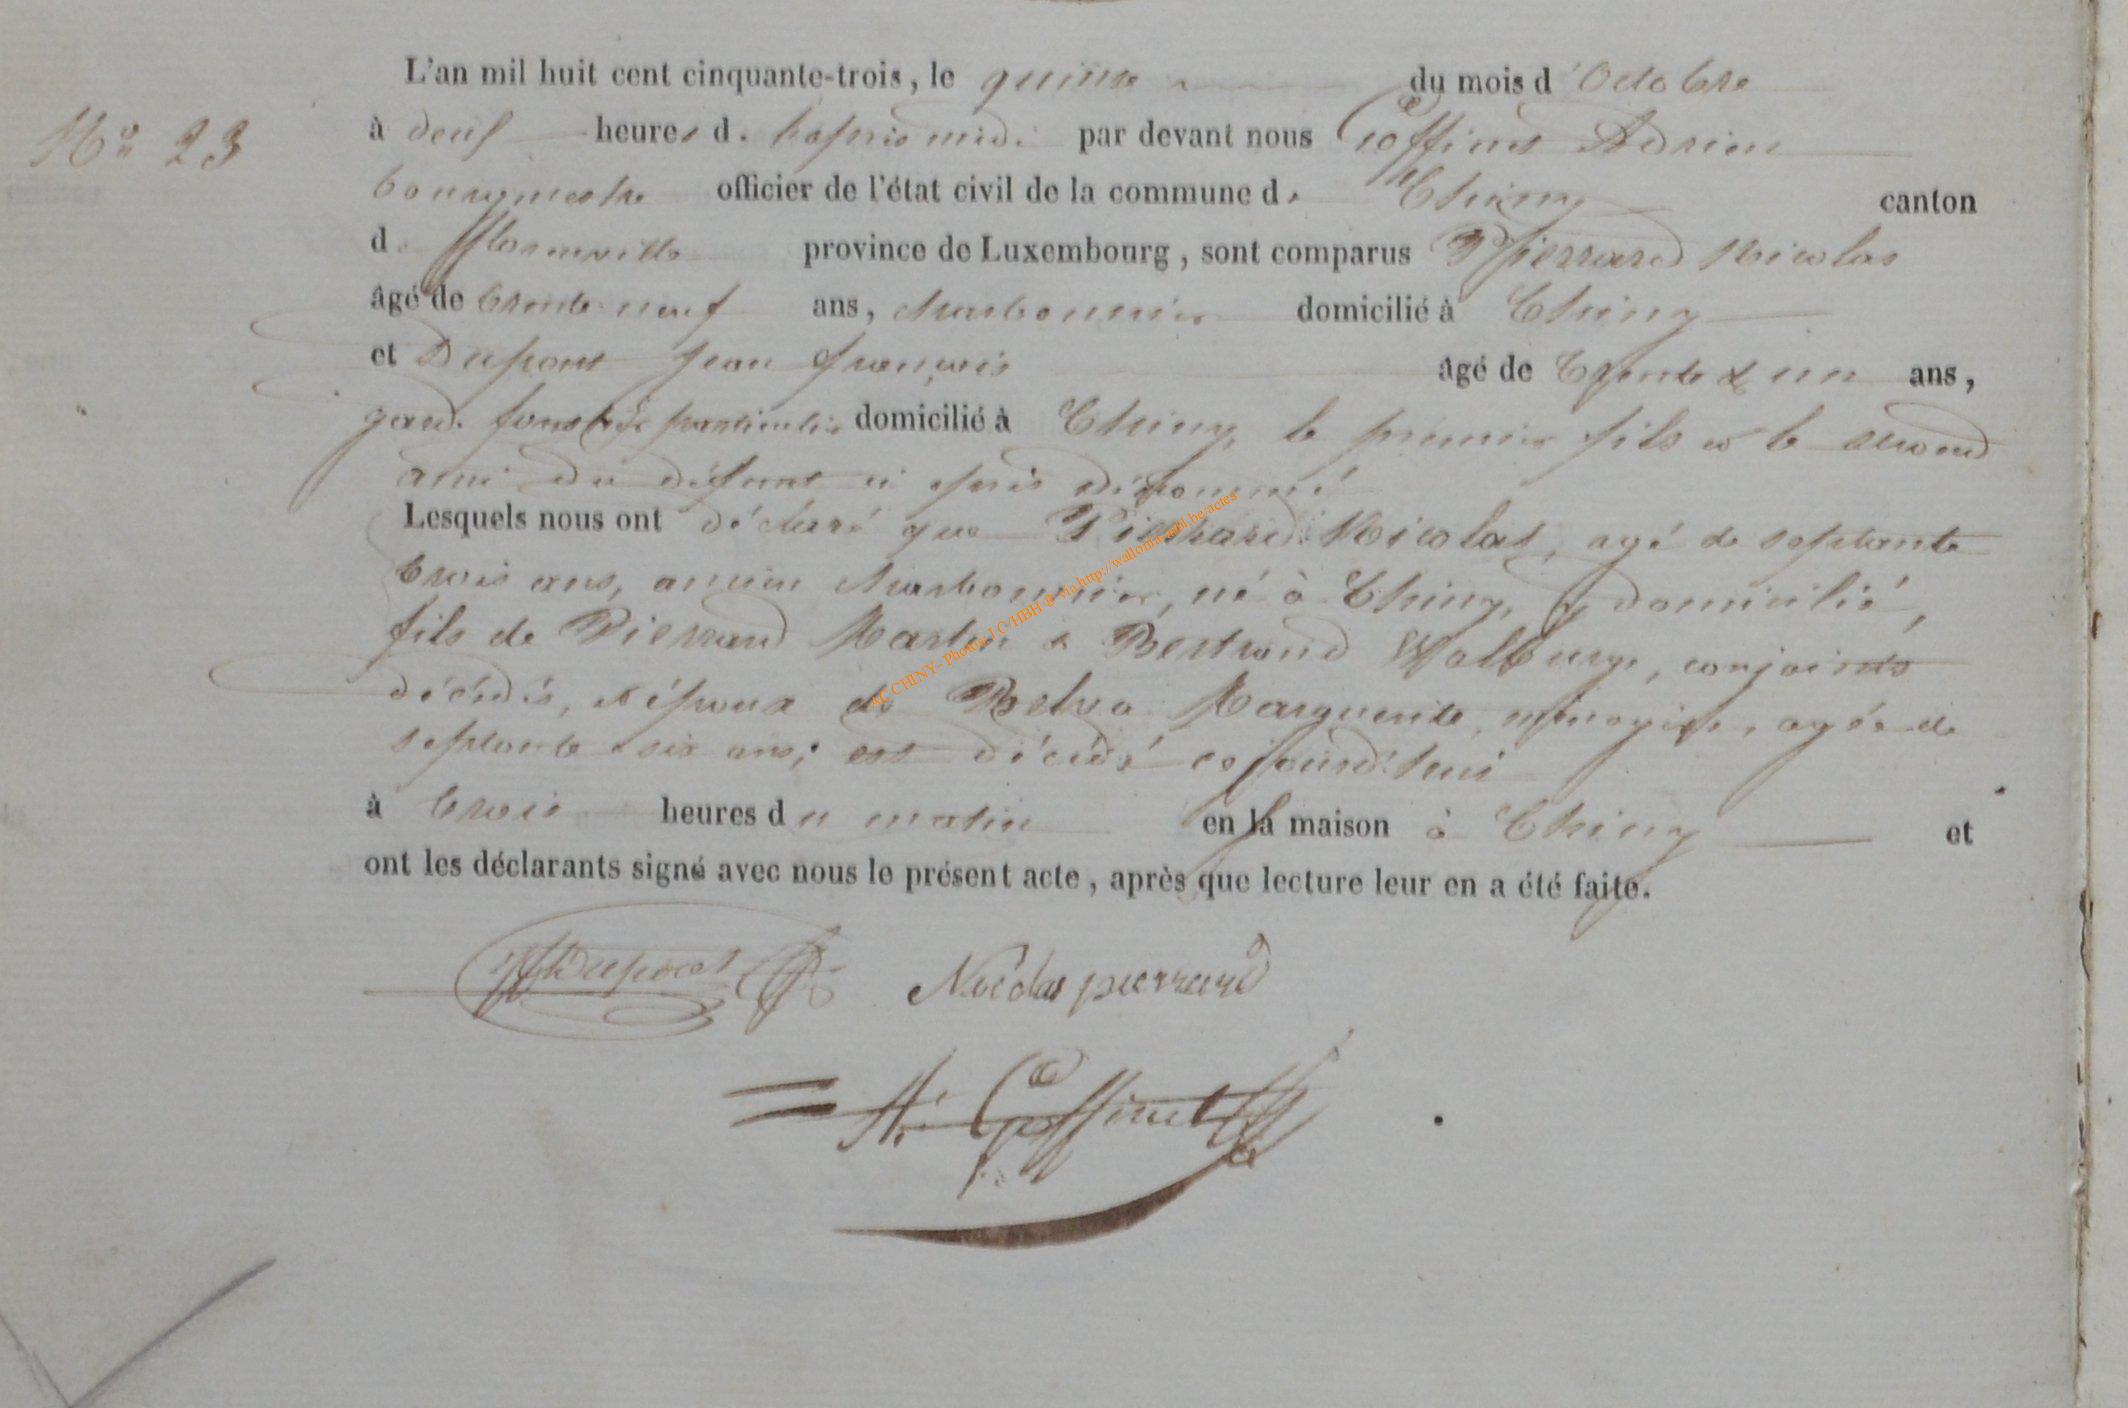 L'an mil huit cent cinquante-trois, le quinze du mois d'Octobre
N° 23
à deux heures de l'après midi par devant nous Goffinet Adrien
bourgmestre officier de l'état civil de la commune de Chiny canton
de Florenville province de Luxembourg, sont comparus Pierrard Nicolas
âgé de trente neuf ans, charbonnier domicilié à Chiny
et Dupont Jean françois âgé de trente & un ans,
garde forestier particulier domicilié à Chiny, le premier fils et le second
ami du défunt ci après dénommé
Lesquels nous ont déclaré que Pierrard Nicolas, agé de septante
trois ans, ancien charbonnier, né à Chiny, y domicilié,
fils de Pierrard Martin & Bertrand Walburge, conjoints
décédés, & époux de Marguerite, ménagère, agée de
septante six ans; est décédé cejourd'hui
à trois heures du matin en la maison à Chiny et
ont les déclarants signé avec nous le présent acte, après que lecture leur en a été faite.
JfDupont Nicolas pierrard
A. Goffinet
AC CHINY- Photos J.C/HBH © via http://wallonia-asbl.be/actes